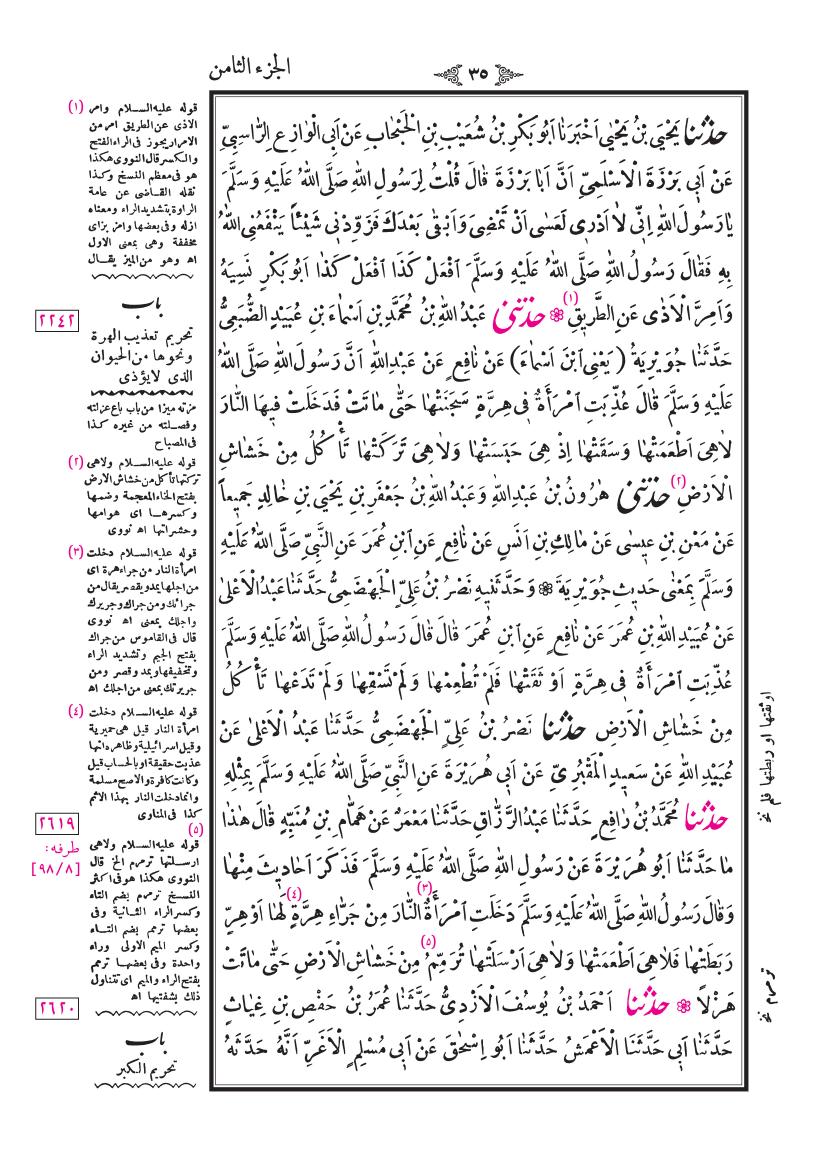 ٣٥
الجزء الثامن
حَدَّثَنَا يَحْيَى بْنُ يَحْيٰى اَخْبَرَنَا اَبُو بَكْرِ بْنُ شُعَيْبِ بْنِ الْحَبْحَابِ عَنْ اَبِى الْوَازِعِ الرَّاسِبِىِّ
عَنْ اَبِى بَرْزَةَ الْاَسْلَمِىِّ اَنَّ اَبَا بَرْزَةَ قَالَ قُلْتُ لِرَسُولِ اللهِ صَلَّى اللهُ عَلَيْهِ وَسَلَّمَ
يَا رَسُولَ اللهِ اِنِّى لَا اَدْرِى لَعَسٰى اَنْ تَمْضِىَ وَاَبْقٰى بَعْدَكَ فَزَوِّدْنِى شَيْئًا يَنْفَعُنِى اللهُ
بِهِ فَقَالَ رَسُولُ اللهِ صَلَّى اللهُ عَلَيْهِ وَسَلَّمَ اَفْعَلْ كَذَا اَفْعَلْ كَذَا اَبُو بَكْرٍ نَسِيَهُ
وَاَمِرَّ الْاَذٰى عَنِ الطَّرِيقِ (١) حَدَّثَنِى عَبْدُ اللهِ بْنُ مُحَمَّدِ بْنِ اَسْمَاءَ بْنِ عُبَيْدٍ الضُّبَعِىُّ
حَدَّثَنَا جُوَيْرِيَةُ ( يَعْنِى ابْنَ اَسْمَاءَ ) عَنْ نَافِعٍ عَنْ عَبْدِ اللهِ اَنَّ رَسُولَ اللهِ صَلَّى اللهُ
عَلَيْهِ وَسَلَّمَ قَالَ عُذِّبَتِ امْرَأَةٌ فِى هِرَّةٍ سَجَنَتْهَا حَتّٰى مَاتَتْ فَدَخَلَتْ فِيهَا النَّارَ
لَاهِىَ اَطْعَمَتْهَا وَسَقَتْهَا اِذْ هِىَ حَبَسَتْهَا وَلَاهِىَ تَرَكَتْهَا تَأْكُلُ مِنْ خَشَاشِ
الْاَرْضِ (٢) حَدَّثَنِى هٰرُونُ بْنُ عَبْدِ اللهِ وَعَبْدُ اللهِ بْنُ جَعْفَرِ بْنِ يَحْيَى بْنِ خَالِدٍ جَمِيعًا
عَنْ مَعْنِ بْنِ عِيسٰى عَنْ مَالِكِ بْنِ اَنَسٍ عَنْ نَافِعٍ عَنِ ابْنِ عُمَرَ عَنِ النَّبِىِّ صَلَّى اللهُ عَلَيْهِ
وَسَلَّمَ بِمَعْنٰى حَدِيثِ جُوَيْرِيَةَ وَحَدَّثَنِيهِ نَصْرُ بْنُ عَلِىٍّ الْجَهْضَمِىُّ حَدَّثَنَا عَبْدُ الْاَعْلٰى
عَنْ عُبَيْدِ اللهِ بْنِ عُمَرَ عَنْ نَافِعٍ عَنِ ابْنِ عُمَرَ قَالَ قَالَ رَسُولُ اللهِ صَلَّى اللهُ عَلَيْهِ وَسَلَّمَ
عُذِّبَتِ امْرَأَةٌ فِى هِرَّةٍ اَوْ ثَقَتْهَا فَلَمْ تُطْعِمْهَا وَلَمْ تَسْقِهَا وَلَمْ تَدَعْهَا تَأْكُلُ
مِنْ خَشَاشِ الْاَرْضِ حَدَّثَنَا نَصْرُ بْنُ عَلِىٍّ الْجَهْضَمِىُّ حَدَّثَنَا عَبْدُ الْاَعْلٰى عَنْ
عُبَيْدِ اللهِ عَنْ سَعِيدٍ الْمَقْبُرِىِّ عَنْ اَبِى هُرَيْرَةَ عَنِ النَّبِىِّ صَلَّى اللهُ عَلَيْهِ وَسَلَّمَ بِمِثْلِهِ
حَدَّثَنَا مُحَمَّدُ بْنُ رَافِعٍ حَدَّثَنَا عَبْدُ الرَّزَّاقِ حَدَّثَنَا مَعْمَرٌ عَنْ هَمَّامِ بْنِ مُنَبِّهٍ قَالَ هٰذَا
مَا حَدَّثَنَا اَبُو هُرَيْرَةَ عَنْ رَسُولِ اللهِ صَلَّى اللهُ عَلَيْهِ وَسَلَّمَ فَذَكَرَ اَحَادِيثَ مِنْهَا
وَقَالَ رَسُولُ اللهِ صَلَّى اللهُ عَلَيْهِ وَسَلَّمَ دَخَلَتِ امْرَأَةٌ (٣) النَّارَ مِنْ جَرَّاءِ هِرَّةٍ (٤) لَهَا اَوْ هِرٍّ
رَبَطَتْهَا فَلَاهِىَ اَطْعَمَتْهَا وَلَاهِىَ اَرْسَلَتْهَا تُرَمِّمُ (٥) مِنْ خَشَاشِ الْاَرْضِ حَتّٰى مَاتَتْ
هَزْلًا حَدَّثَنَا اَحْمَدُ بْنُ يُوسُفَ الْاَزْدِىُّ حَدَّثَنَا عُمَرُ بْنُ حَفْصِ بْنِ غِيَاثٍ
حَدَّثَنَا اَبِى حَدَّثَنَا الْاَعْمَشُ حَدَّثَنَا اَبُو اِسْحٰقَ عَنْ اَبِى مُسْلِمٍ الْاَغَرِّ اَنَّهُ حَدَّثَهُ
(١) قوله عليه السلام وامر
الاذى عن الطريق امر من
الامرار يجوز فى الراء الفتح
والكسر قال النووى هكذا
هو فى معظم النسخ وكذا
نقله القاضى عن عامة
الرواة بتشديد الراء ومعناه
ازله وفى بعضها وامز بزاى
مخففة وهى بمعنى الاول
اه وهو من الميز يقال
باب
٢٢٤٢
تحريم تعذيب الهرة
ونحوها من الحيوان
الذى لايؤذى
مزته ميزا من باب باع عزلته
وفصلته من غيره كذا
فى المصباح
(٢) قوله عليه السلام ولاهى
تركتها تأكل من خشاش الارض
بفتح الخاء المعجمة وضمها
وكسرها اى هوامها
وحشراتها اه نووى
(٣) قوله عليه السلام دخلت
امرأة النار من جراء هرة اى
من اجلها يمد ويقصر يقال من
جرائك ومن جراك وجريرك
واجلك بمعنى اه نووى
قال فى القاموس من جراك
بفتح الجيم وتشديد الراء
وتخفيفها ويمد وقصر ومن
جريرتك بمعنى من اجلك اه
(٤) قوله عليه السلام دخلت
امرأة النار قيل هى حميرية
وقيل اسرائيلية وظاهره انها
عذبت حقيقة او بالحساب قيل
وكانت كافرة والاصح مسلمة
وانما دخلت النار بهذا الاثم
كذا فى المناوى
٢٦١٩
طرفه:
[٩٨/٨]
(٥)
قوله عليه السلام ولاهى
ارسلتها ترمرم الخ قال
النووى هكذا هو فى اكثر
النسخ ترمرم بضم التاء
وكسر الراء الثانية وفى
بعضها ترمم بضم التاء
وكسر الميم الاولى وراء
واحدة وفى بعضها ترمم
بفتح الراء والميم اى تتناول
ذلك بشفتيها اه
٢٦٢٠
باب
تحريم الكبر
اوثقتها او ربطتها فلم نخ
ترمرم نخ